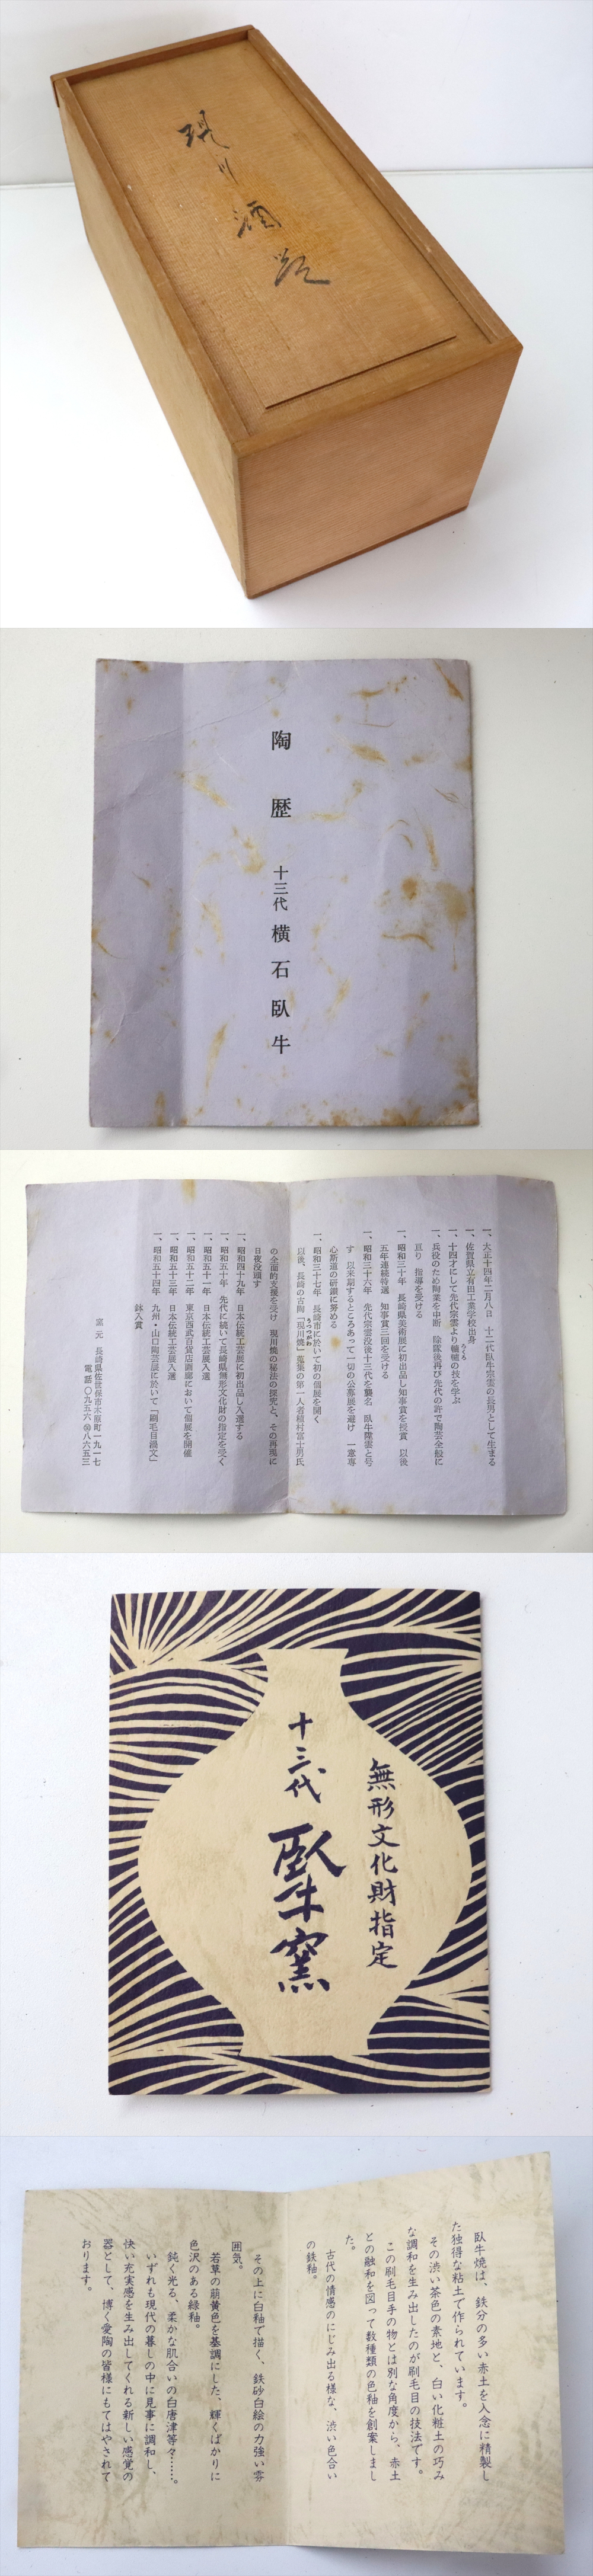 現川酒瓶
陶歴
十三代 横石臥牛
一、大正十四年二月八日 十二代臥牛宗雲の長男として生まる
一、佐賀県立有田工業学校出身
一、十四才にして先代宗雲より轆轤の技を学ぶ
ろくろ
一、兵役のため陶業を中断 除隊後再び先代の許で陶芸全般に
亘り 指導を受ける
一、昭和三十年 長崎県美術展に初出品し知事賞を授賞 以後
五年連続特選 知事賞三回を受ける
一、昭和三十六年 先代宗雲歿後十三代を襲名 臥牛隆雲と号
す 以来期するところあって一切の公募展を避け 一意専
心斯道の研鑽に努める
一、昭和三十七年 長崎市に於いて初の個展を開く
うつつがわ
以後、長崎の古陶「現川焼」蒐集の第一人者植村富士男氏
の全面的支援を受け 現川焼の秘法の探究と、その再現に
日夜没頭す
一、昭和四十九年 日本伝統工芸展に初出品し入選する
一、昭和五十年 先代に続いて長崎県無形文化財の指定を受く
一、昭和五十一年 日本伝統工芸展入選
一、昭和五十二年 東京西武百貨店画廊において個展を開催
一、昭和五十三年 日本伝統工芸展入選
一、昭和五十四年 九州・山口陶芸展に於いて「刷毛目渦文」
鉢入賞
窯元 長崎県佐世保市木原町一九一七
電話〇九五六㉚八六五三
無形文化財指定
十三代 臥牛窯
臥牛焼は、鉄分の多い赤土を入念に精製し
た独得な粘土で作られています。
その渋い茶色の素地と、白い化粧土の巧み
な調和を生み出したのが刷毛目の技法です。
この刷毛目手の物とは別な角度から、赤土
との融和を図って数種類の色釉を創案しまし
た。
古代の情感のにじみ出る様な、渋い色合い
の鉄釉。
その上に白釉で描く、鉄砂白絵の力強い雰
囲気。
若草の萠黄色を基調にした、輝くばかりに
色沢のある緑釉。
鈍く光る、柔かな肌合いの白唐津等々……。
いずれも現代の暮しの中に見事に調和し、
快い充実感を生み出してくれる新しい感覚の
器として、博く愛陶の皆様にもてはやされて
おります。